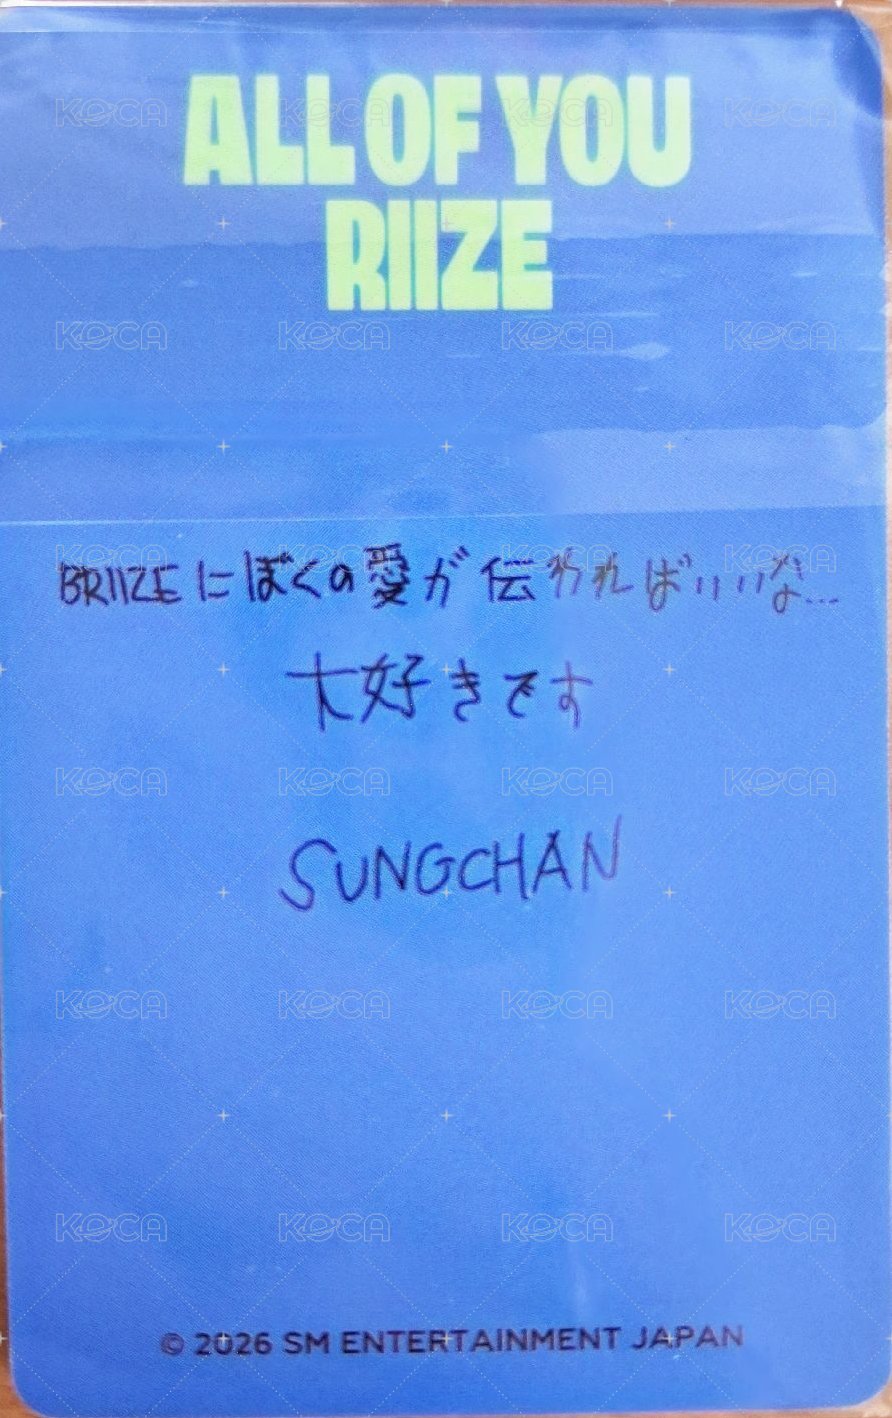 ALL OF YOU
RIIZE
BRIIZEにぼくの愛が伝わればいいな...
大好きです
SUNGCHAN
© 2026 SM ENTERTAINMENT JAPAN
KOCA